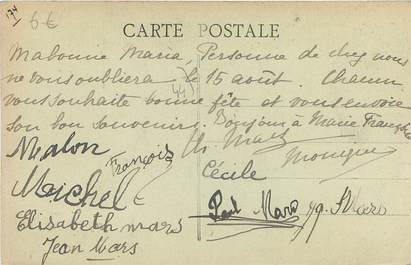 174 6€
CARTE POSTALE
Ma bonne Maria, Personne de chez nous
ne vous oubliera le 15 août. Chacun
vous souhaite bonne fête et vous envoie
son bon souvenir. Bonjour à Marie
Ch. Mars
Malon
François
Monique
Cécile
Michel
Paul Mars
Elisabeth Mars
Jean Mars